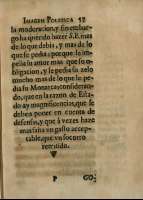 IMAGEN POLITICA 57
la moderacion, y sin embargo
ha querido hazer S.E. mas
de lo que debia, y mas de lo
que se pedia; porque le impelia
su amor mas que su obligacion,
y le pedia su zelo
mucho mas de lo que pedia
su Monarca; considerando,
que en la razon de Estado
ay magnificencias, que se
deben poner en cuenta de
defensas, y que à vezes haze
mas falta un gasto acceptable,
que un socorro
remitido.
P